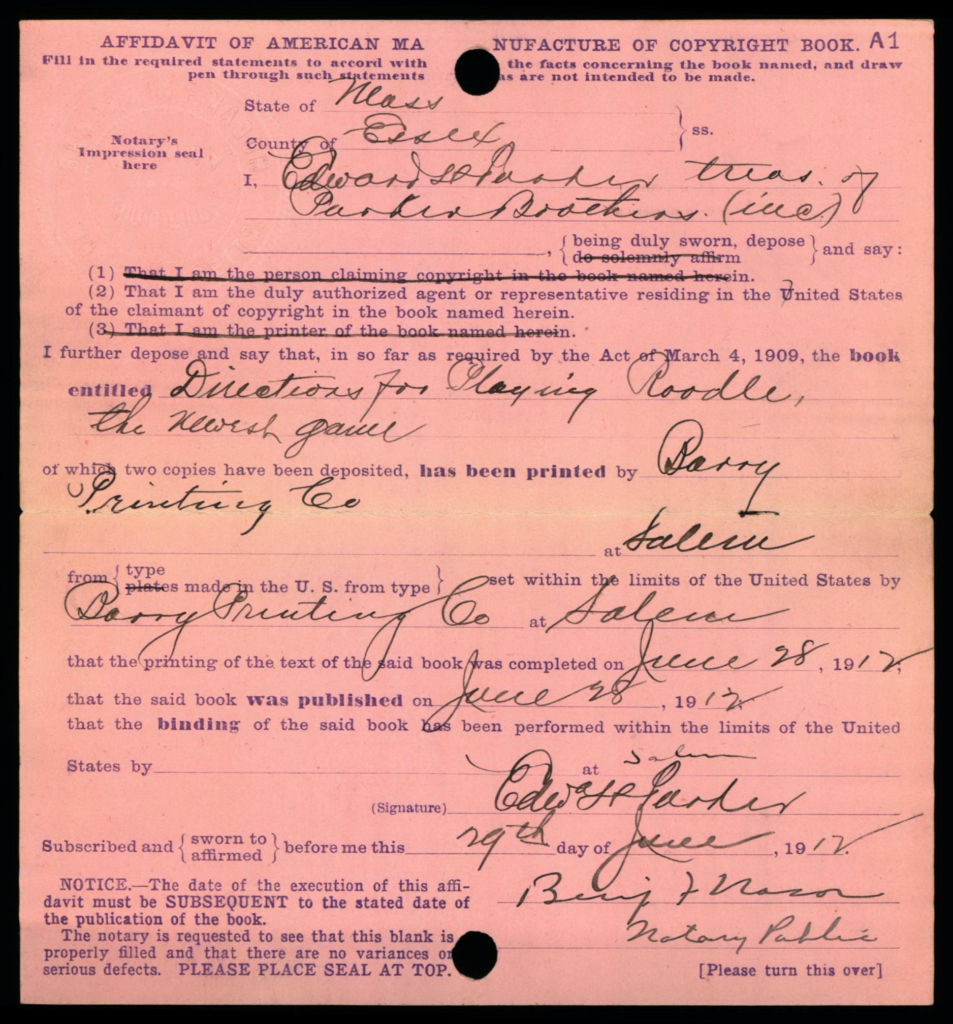 AFFIDAVIT OF AMERICAN MA NUFACTURE OF COPYRIGHT BOOK. A1
Fill in the required statements to accord with the facts concerning the book named, and draw
pen through such statements as are not intended to be made.
Notary's
Impression seal
here
State of Mass
County of Essex } ss.
I, Edward H Parker treas. of
Parker Brothers. (inc)
, { being duly sworn, depose
do solemnly affirm } and say:
(1) That I am the person claiming copyright in the book named herein.
(2) That I am the duly authorized agent or representative residing in the United States
of the claimant of copyright in the book named herein.
(3) That I am the printer of the book named herein.
I further depose and say that, in so far as required by the Act of March 4, 1909, the book
entitled Directions for Playing Roodle,
the newest game
of which two copies have been deposited, has been printed by Barry
Printing Co
at Salem
from { type
plates made in the U. S. from type } set within the limits of the United States by
Barry Printing Co at Salem
that the printing of the text of the said book was completed on June 28, 1912,
that the said book was published on June 28, 1912
that the binding of the said book has been performed within the limits of the United
States by at Salem
(Signature) Edw H Parker
Subscribed and { sworn to
affirmed } before me this 29th day of June, 1912.
Benj F Nason
Notary Public
NOTICE.—The date of the execution of this affi-
davit must be SUBSEQUENT to the stated date of
the publication of the book.
The notary is requested to see that this blank is
properly filled and that there are no variances or
serious defects. PLEASE PLACE SEAL AT TOP.
[Please turn this over]